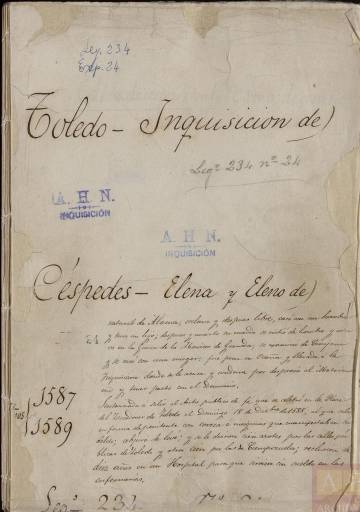 Leg. 234
Exp. 24
Toledo - Inquisicion de)
Legº 234 nº 24
A. H. N.
INQUISICIÓN
A. H. N.
INQUISICIÓN
Céspedes - Elena y Eleno de)
natural de Alhama, esclava y despues libre, casó con un hombre
y tuvo un hijo; despues y muerto su marido se vistio de hombre y
en la guerra de los Moriscos de Granada, se examinó de Cirujano
y se casó con una muger: fue presa en Ocaña y llevada a la
Inquisicion donde se le acusa y condena por desprecio al Matrimonio
y tener pacto con el Demonio.
Sentenciada a salir al Auto publico de fe que se celebró en la Plaza
del Zocodover de Toledo el Domingo 18 de Dicbre de 1588, al que salio
en forma de penitente con coroza e insignias que manifestaban su
delito, abjuró de levi; y se le dieron cien azotes por las calles públicas
de Toledo y otros cien por las de Ciempozuelos; reclusion de
diez años en un Hospital para que sirviese sin sueldo en las
enfermerias.
1587
1589
Legº 234